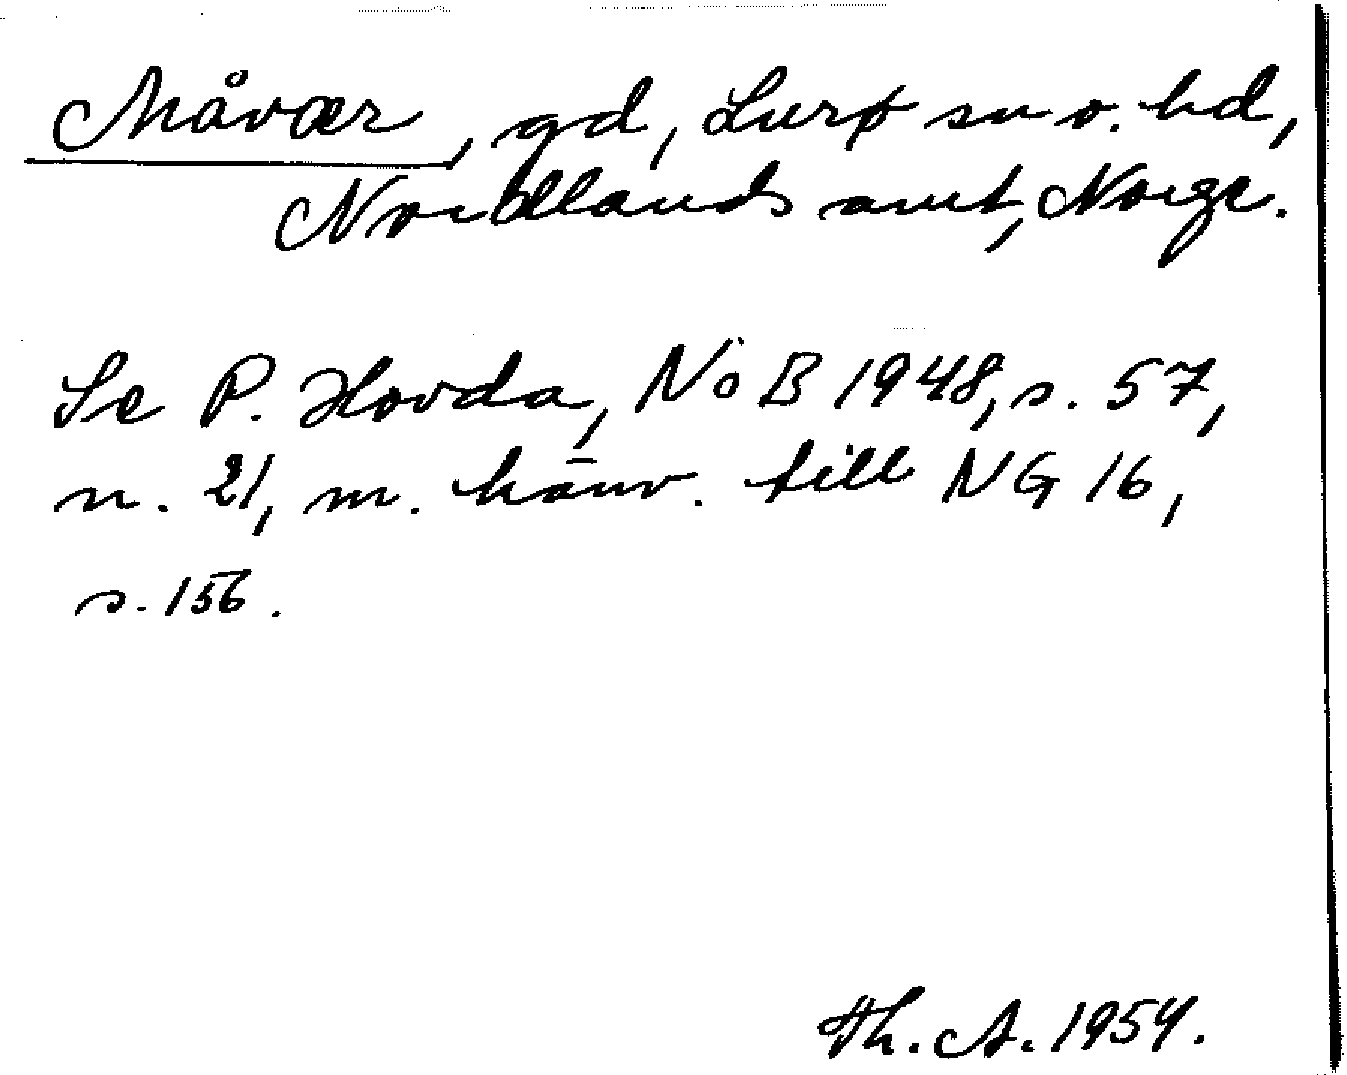 Måvær, gd, Lurø sn o. hd,
Nordlands amt, Norge.
Se P. Hovda, NoB 1948, s. 57,
n. 21, m. hänv. till NG 16,
s. 156.
Th. A. 1954.